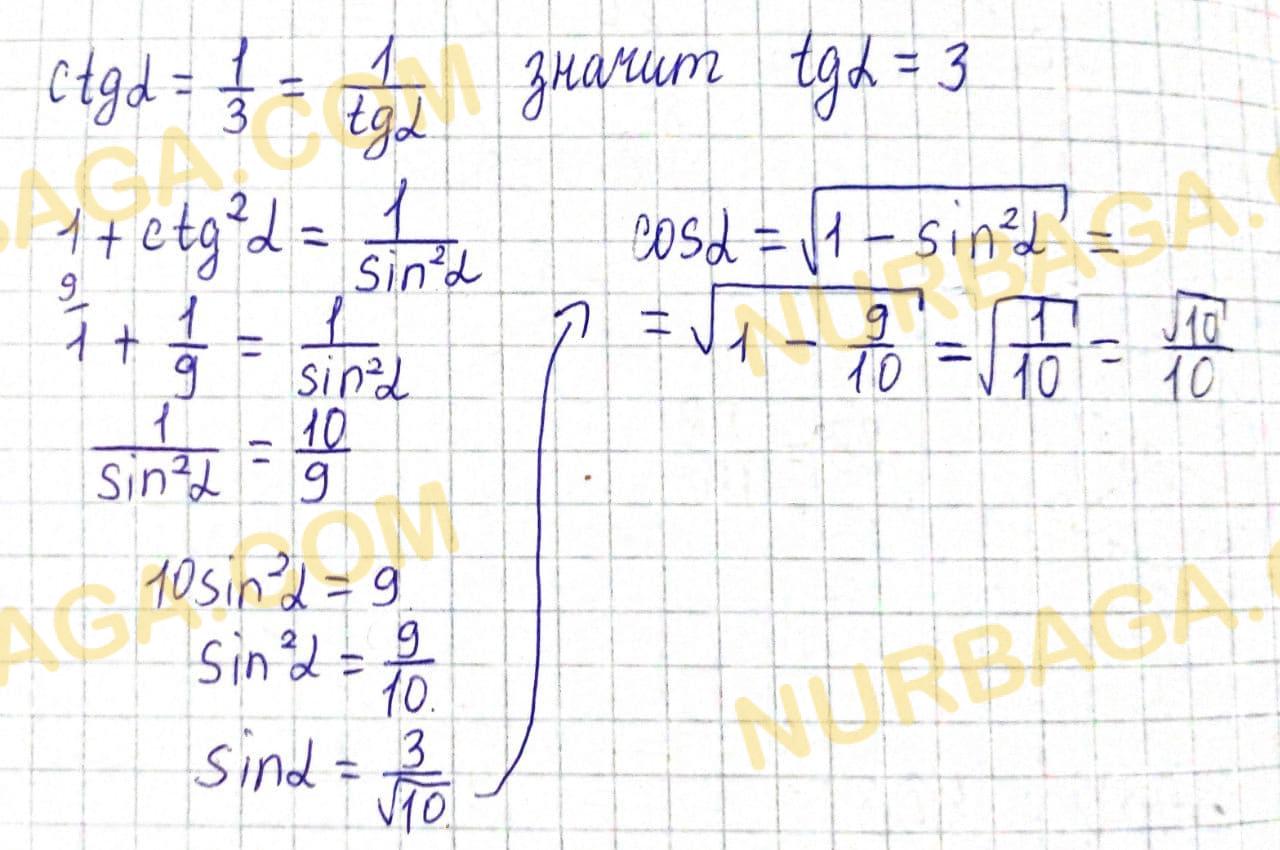 ctgα = 1/3 = 1/tgα значит tgα = 3
1 + ctg²α = 1/sin²α
9
1 + 1/9 = 1/sin²α
1/sin²α = 10/9
10sin²α = 9
sin²α = 9/10
sinα = 3/√10
cosα = √(1 - sin²α) =
= √(1 - 9/10) = √(1/10) = √10/10
NURBAGA.COM
NURBAGA.COM
NURBAGA.COM
NURBAGA.COM